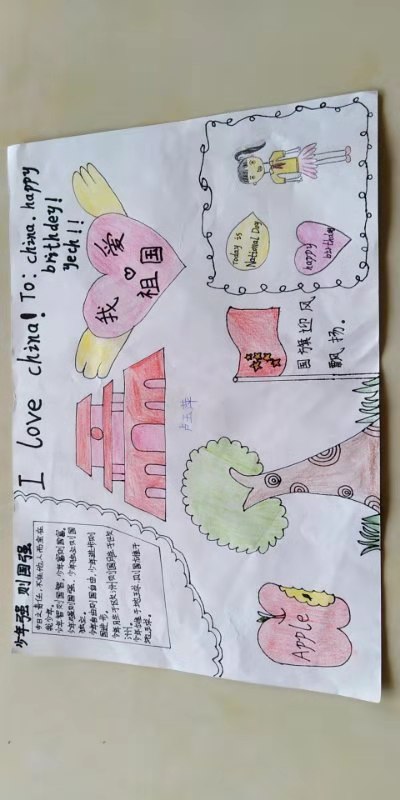 少年强 则国强
今日之责任,不在他人,而全在
我少年。
少年智则国智,少年富则国富。
少年强则国强,少年独立则国
独立。
少年自由则国自由,少年进步则
国进步。
少年胜于欧洲,则国胜于欧
洲。
少年雄于地球,则国雄于
地球。
I love china! To: china. happy
birthday!
Yeah!!
我爱
祖国
Today is
National Day
happy
birthday
国旗迎风
飘扬.
Apple